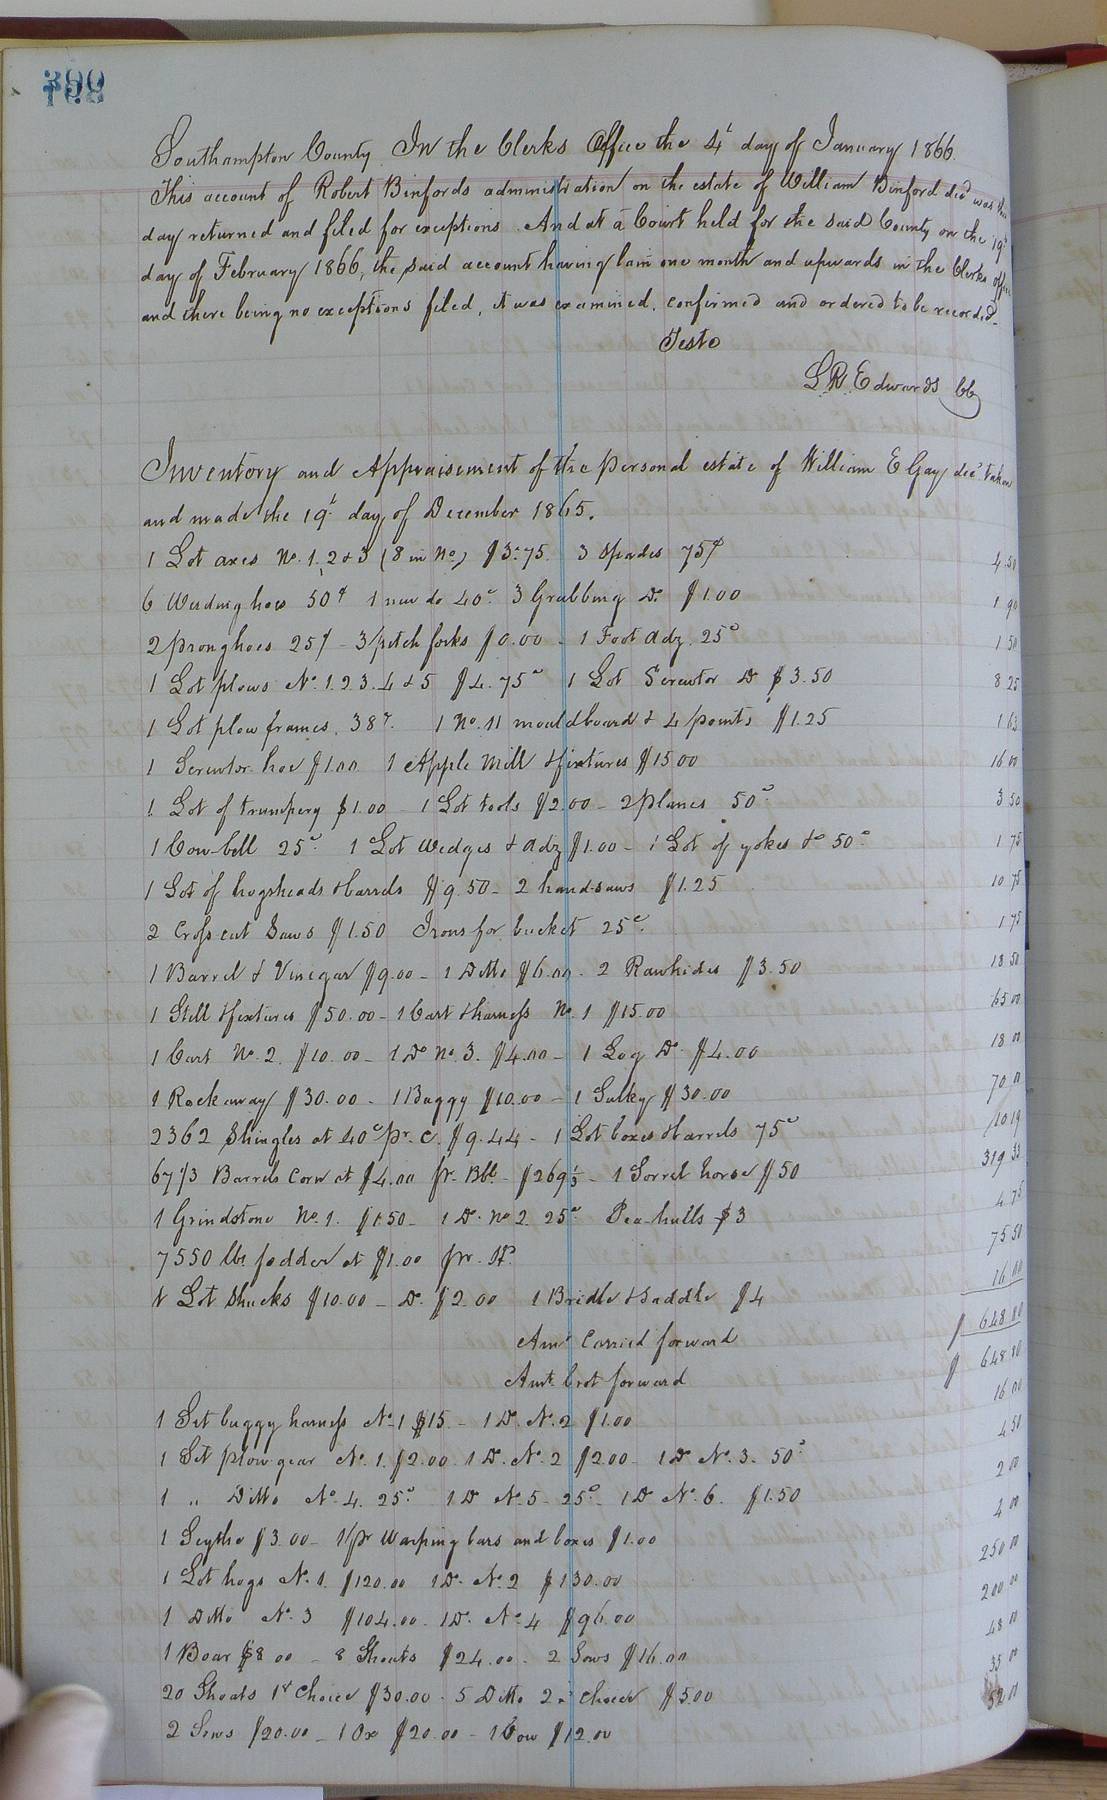 399
Southampton County In the Clerks Office the 4t day of January 1866.
This account of Robert Binfords administration on the estate of William Binford decd was this
day returned and filed for exceptions. And at a Court held for the said County on the 19th
day of February 1866, the said account having lain one month and upwards in the Clerks office
and there being no exceptions filed, it was examined, confirmed and ordered to be recorded.
Teste
L.R. Edwards CC
Inventory and Appraisement of the personal estate of William E Gay decd taken
and made the 19t day of December 1865.
1 Lot axes No. 1, 2 & 3 (8 in No) $3.75 3 Spades 75¢ 4.50
6 Weeding hoes 50¢ 1 new do 40c. 3 Grubbing Do. $1.00 1 90
2 prong hoes 25¢ - 3 pitch forks $0.00 - 1 Foot adz. 25c 1 50
1 Lot plows No. 1. 2 3. 4 & 5 $4.75c 1 Lot Screwtor Do $3.50 8 25
1 Lot plow frames, 38¢. 1 No. 11 mouldboard & 4 points $1.25 1 63
1 Screwtor hoe $1.00 1 Apple Mill & fixtures $15.00 16 00
1 Lot of trumpery $1.00 - 1 Lot tools $2.00 - 2 planes 50c 3 50
1 Cow-bell 25c. 1 Lot Wedges & adz $1.00 - 1 Lot of yokes &c 50c 1 75
1 Lot of hogsheads & barrels $9.50 - 2 hand-saws $1.25 10 75
2 Cross cut Saws $1.50 Irons for bucket 25c. 1 75
1 Barrel & Vinegar $9.00 - 1 Ditto $6.00 - 2 Rawhides $3.50 18 50
1 Still & fixtures $50.00 - 1 Cart & harness No. 1 $15.00 65 00
1 Cart No. 2. $10.00 - 1 Do No. 3. $4.00 - 1 Log Do. $4.00 18 00
1 Rockaway $30.00 - 1 Buggy $10.00 - 1 Sulky $30.00 70 00
2362 Shingles at 40c pr. C. $9.44 - 1 Lot boxes & barrels 75c 10 19
67 1/3 Barrels Corn at $4.00 pr. Bbl - $269 1/3 - 1 Sorrel horse $50 319 33
1 Grindstone No. 1. $1.50 - 1 Do. No 2. 25c Pea-hulls $3 4.75
7550 lbs fodder at $1.00 pr. H. 75 50
1 Lot Shucks $10.00 - Do. $2.00 1 Bridle & Saddle $4 16 00
Amt Carried forward $ 648.80
Amt. brot forward $ 648 80
1 Set buggy harness No. 1 $15 - 1 Do. No. 2 $1.00 16 00
1 Set plow-gear No. 1. $2.00. 1 Do. No. 2 $2.00 - 1 Do No. 3. 50c 4 50
1 " Ditto No. 4. 25c. 1 Do No. 5 - 25c - 1 Do No. 6. $1.50 2 00
1 Scythe $3.00 - 1 pr Warping bars and boxes $1.00 4 00
1 Lot hogs No. 1. $120.00 1 Do. No. 2 $130.00 250 00
1 Ditto No. 3 $104.00. 1 Do. No. 4 $96.00 200 00
1 Boar $8 00 - 8 Shoats $24.00 - 2 Sows $16.00 48 00
20 Shoats 1st Choice $30.00 - 5 Ditto 2nd choice $5.00 35 00
2 Sows $20.00 - 1 Ox $20.00 - 1 Cow $12.00 52 00